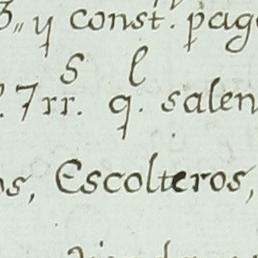 y const. pag
S l
rr. q. salen
os, Escolteros,